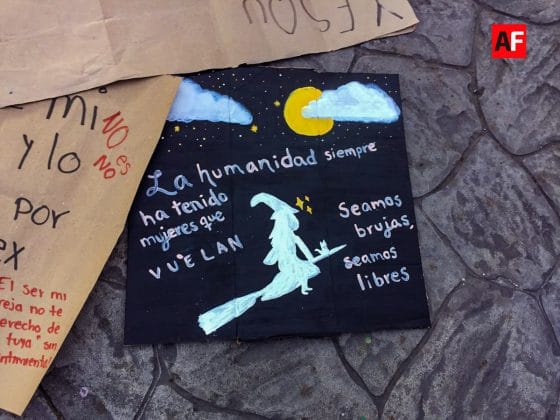 Y ESOY
AF
mi
y lo
por
NO
NO es
La humanidad siempre
ha tenido
mujeres que
VUELAN
Seamos
brujas,
seamos
libres
El ser mi
reja no te
derecho de
tuya" son